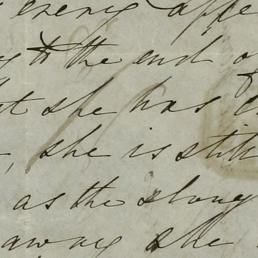 every appe
to the end o
t she has
, she is still
as the slong
away she